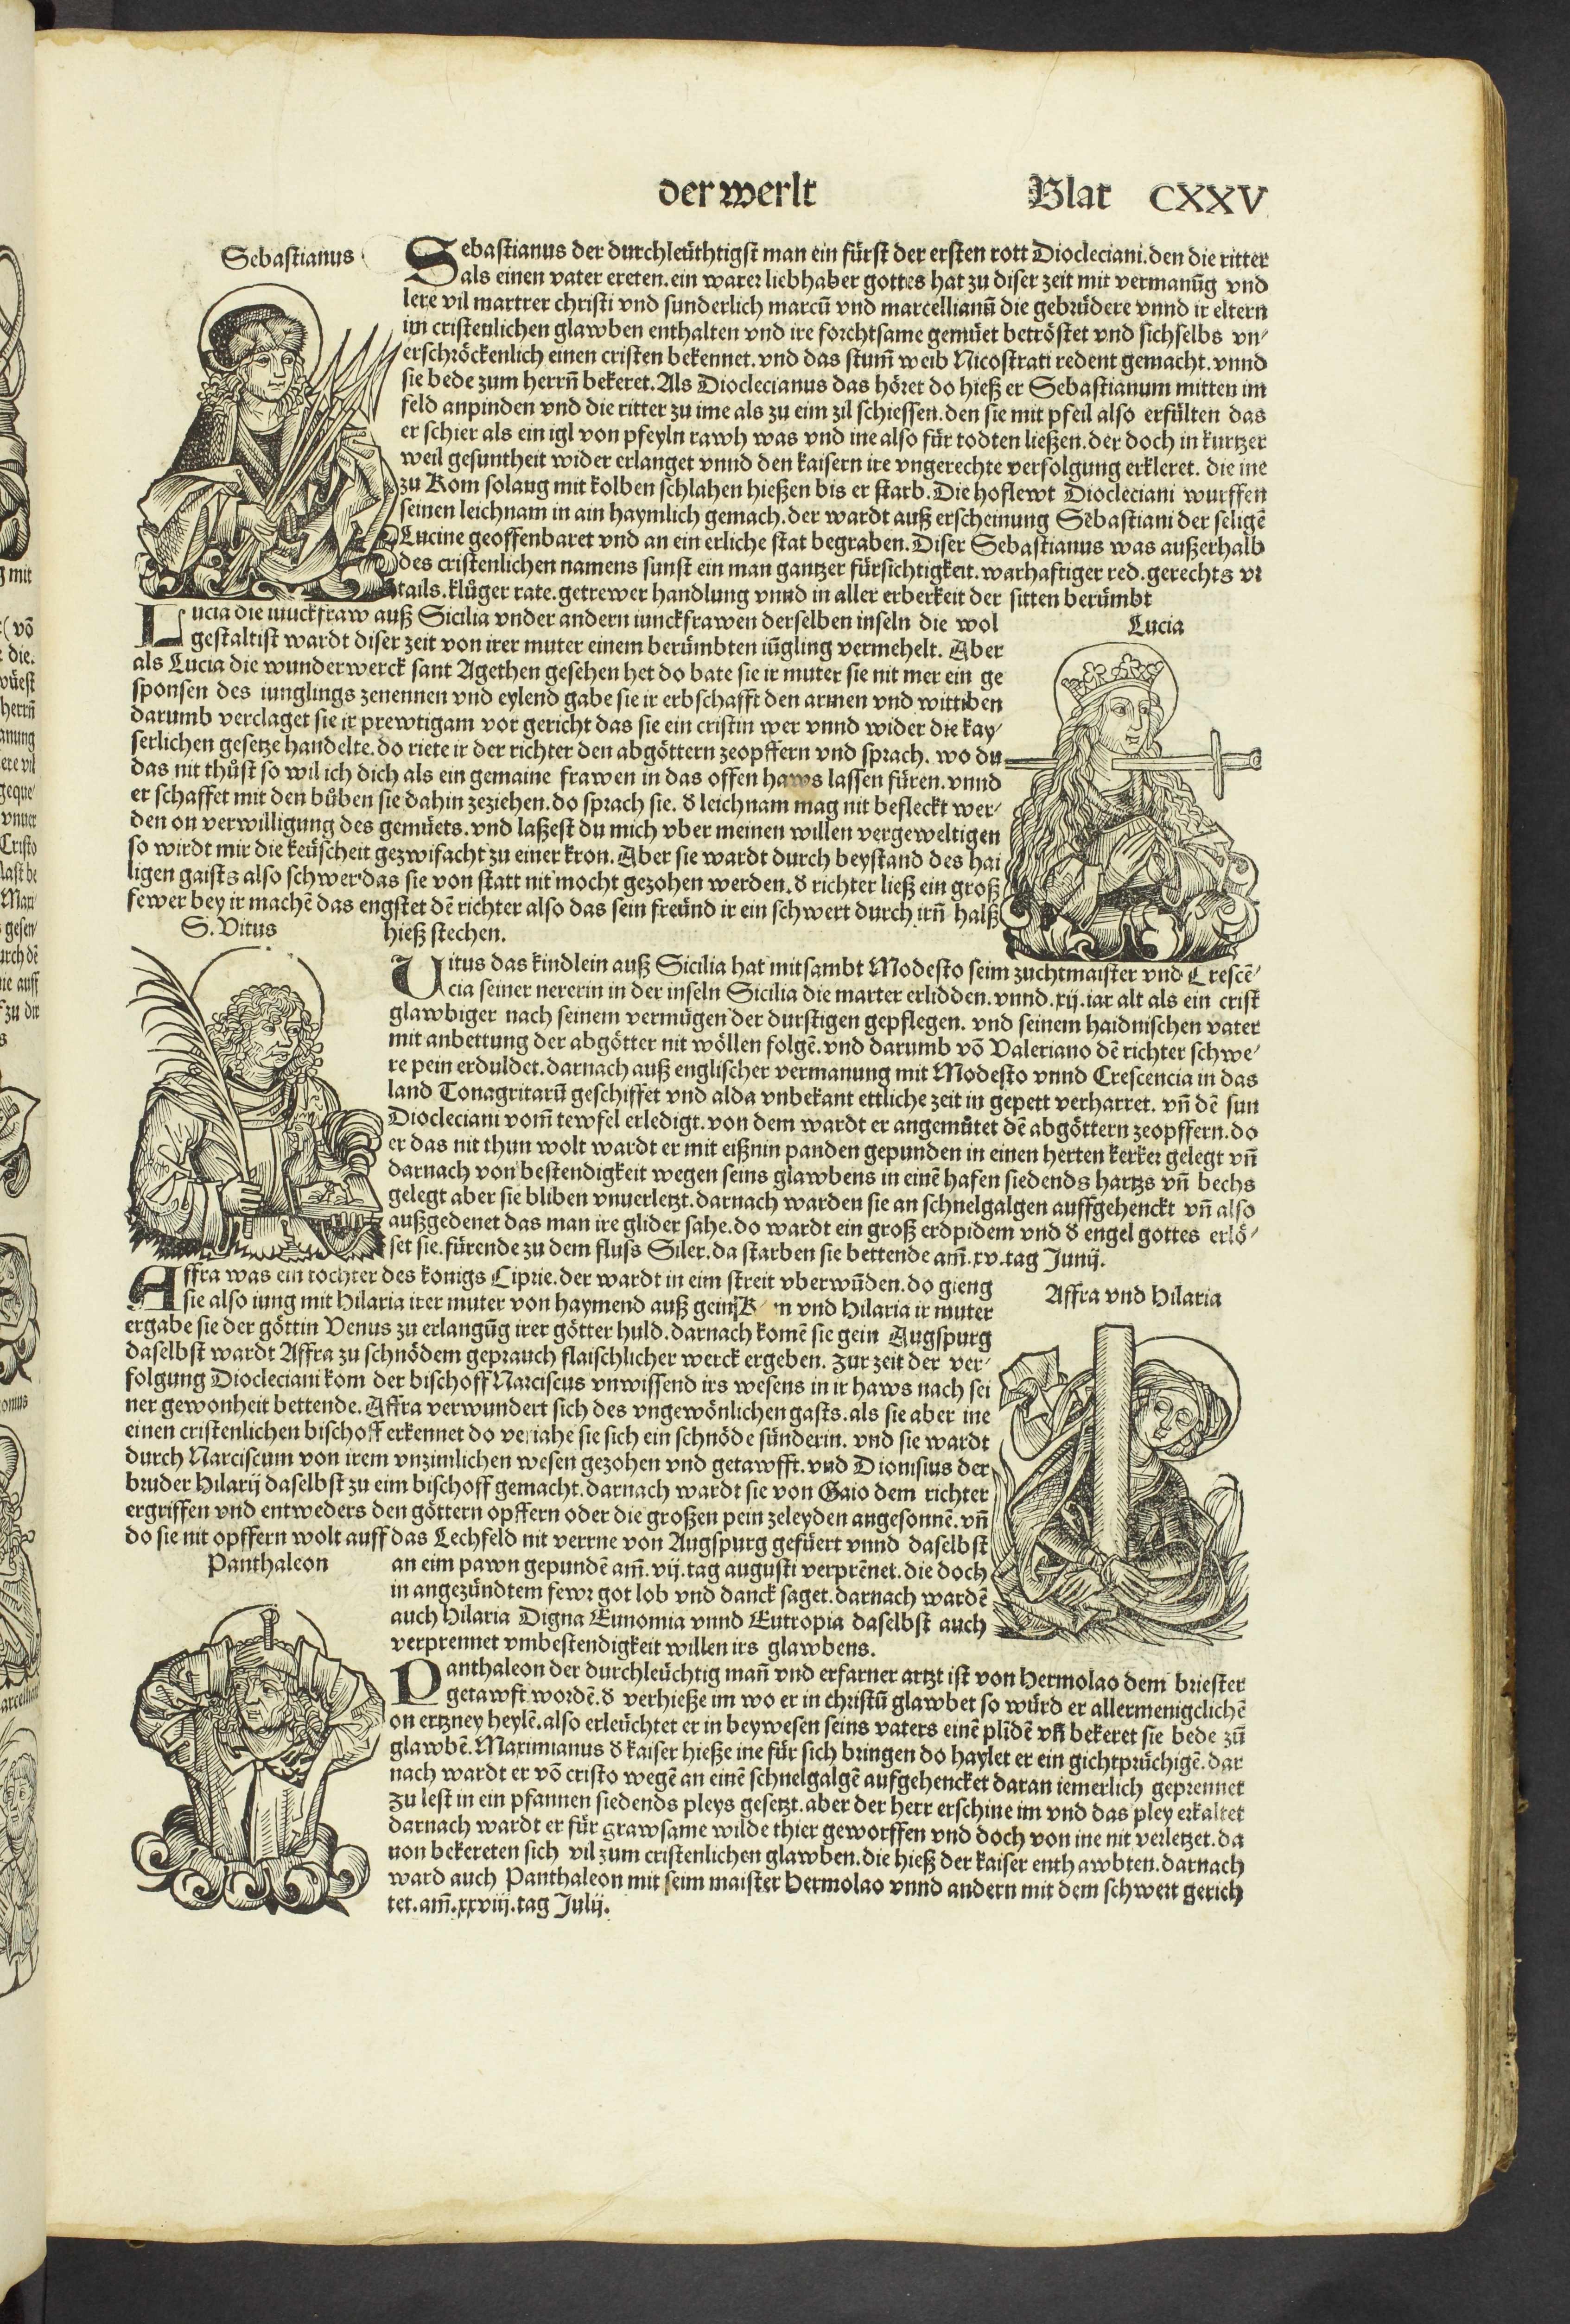 der werlt
Blat CXXV
Sebastianus
Sebastianus der durchleüthtigst man ein fürst der ersten rott Diocleciani. den die ritter
als einen vater ereten. ein warer liebhaber gottes hat zu diser zeit mit vermanũg vnd
lere vil martrer christi vnd sunderlich marcũ vnd marcellianũ die gebrüdere vnnd ir eltern
im cristenlichen glawben enthalten vnd ire forchtsame gemüet betröstet vnd sichselbs vn-
erschröckenlich einen cristen bekennet. vnd das stum̃ weib Nicostrati redent gemacht. vnnd
sie bede zum herrñ bekeret. Als Dioclecianus das höret do hieß er Sebastianum mitten im
feld anpinden vnd die ritter zu ime als zu eim zil schiessen. den sie mit pfeil also erfülten das
er schier als ein igl von pfeyln rawh was vnd ine also für todten ließen. der doch in kurtzer
weil gesuntheit wider erlanget vnnd den kaisern ire vngerechte verfolgung erkleret. die ine
zu Rom solang mit kolben schlahen hießen bis er starb. Die hoflewt Diocleciani wurffen
seinen leichnam in ain haymlich gemach. der wardt auß erscheinung Sebastiani der seligẽ
Lucine geoffenbaret vnd an ein erliche stat begraben. Diser Sebastianus was außerhalb
des cristenlichen namens sunst ein man gantzer fürsichtigkeit. warhaftiger red. gerechts vr
tails. klůger rate. getrewer handlung vnnd in aller erberkeit der sitten berümbt
Lucia die iunckfraw auß Sicilia vnder andern iunckfrawen derselben inseln die wol
gestaltist wardt diser zeit von irer muter einem berümbten iũgling vermehelt. Aber
als Lucia die wunderwerck sant Agethen gesehen het do bate sie ir muter sie nit mer ein ge
sponsen des iunglings zenennen vnd eylend gabe sie ir erbschafft den armen vnd wittiben
darumb verclaget sie ir prewtigam vor gericht das sie ein cristin wer vnnd wider die kay-
serlichen gesetze handelte. do riete ir der richter den abgöttern zeopffern vnd sprach. wo du
das nit thůst so wil ich dich als ein gemaine frawen in das offen haws lassen füren. vnnd
er schaffet mit den bůben sie dahin zeziehen. do sprach sie. d leichnam mag nit befleckt wer-
den on verwilligung des gemüets. vnd laßest du mich vber meinen willen vergeweltigen
so wirdt mir die keüscheit gezwifacht zu einer kron. Aber sie wardt durch beystand des hai
ligen gaists also schwer das sie von statt nit mocht gezohen werden. d richter ließ ein groß
fewer bey ir machẽ das engstet dẽ richter also das sein freünd ir ein schwert durch irñ halß
hieß stechen.
Lucia
S. Vitus
Vitus das kindlein auß Sicilia hat mitsambt Modesto seim zuchtmaister vnd Crescẽ-
cia seiner nererin in der inseln Sicilia die marter erlidden. vnnd. xij. iar alt als ein crist
glawbiger nach seinem vermügen der durstigen gepflegen. vnd seinem haidnischen vater
mit anbettung der abgötter nit wöllen folgẽ. vnd darumb võ Valeriano dẽ richter schwe-
re pein erduldet. darnach auß englischer vermanung mit Modesto vnnd Crescencia in das
land Tonagritarũ geschiffet vnd alda vnbekant ettliche zeit in gepett verharret. vñ dẽ sun
Diocleciani vom̃ tewfel erledigt. von dem wardt er angemůtet dẽ abgöttern zeopffern. do
er das nit thun wolt wardt er mit eißnin panden gepunden in einen herten kerker gelegt vñ
darnach von bestendigkeit wegen seins glawbens in einẽ hafen siedends hartzs vñ bechs
gelegt aber sie bliben vnuerletzt. darnach warden sie an schnelgalgen auffgehenckt vñ also
außgedenet das man ire glider sahe. do wardt ein groß erdpidem vnd d engel gottes erlö-
set sie. fürende zu dem fluss Siler. da starben sie bettende am̃. xv. tag Junij.
Affra was ein tochter des konigs Ciprie. der wardt in eim streit vberwũden. do gieng
sie also iung mit Hilaria irer muter von haymend auß gein vnd Hilaria ir muter
ergabe sie der göttin Venus zu erlangũg irer götter huld. darnach komẽ sie gein Augspurg
daselbst wardt Affra zu schnödem geprauch flaischlicher werck ergeben. Zur zeit der ver-
folgung Diocleciani kom der bischoff Narciscus vnwissend irs wesens in ir haws nach sei
ner gewonheit bettende. Affra verwundert sich des vngewönlichen gasts. als sie aber ine
einen cristenlichen bischoff erkennet do veriahe sie sich ein schnöde sünderin. vnd sie wardt
durch Narciscum von irem vnzimlichen wesen gezohen vnd getawfft. vnd Dionisius der
bruder Hilarij daselbst zu eim bischoff gemacht. darnach wardt sie von Gaio dem richter
ergriffen vnd entweders den göttern opffern oder die großen pein zeleyden angesonnẽ. vñ
do sie nit opffern wolt auff das Lechfeld nit verrne von Augspurg gefüert vnnd daselbst
an eim pawn gepundẽ am̃. vij. tag augusti verprẽnet. die doch
in angezündtem fewr got lob vnd danck saget. darnach wardẽ
auch Hilaria Digna Eunomia vnnd Eutropia daselbst auch
verprennet vmbestendigkeit willen irs glawbens.
Affra vnd Hilaria
Panthaleon
Panthaleon der durchleüchtig mañ vnd erfarner artzt ist von Hermolao dem briester
getawft wordẽ. d verhieße im wo er in christũ glawbet so würd er allermenigclichẽ
on ertzney heylẽ. also erleüchtet er in beywesen seins vaters einẽ plĩdẽ vñ bekeret sie bede zũ
glawbẽ. Maximianus d kaiser hieße ine für sich bringen do haylet er ein gichtprüchigẽ. dar
nach wardt er võ cristo wegẽ an einẽ schnelgalgẽ aufgehencket daran iemerlich geprennet
zu lest in ein pfannen siedends pleys gesetzt. aber der herr erschine im vnd das pley erkaltet
darnach wardt er für grawsame wilde thier geworffen vnd doch von ine nit verletzet. da
uon bekereten sich vil zum cristenlichen glawben. die hieß der kaiser enthawbten. darnach
ward auch Panthaleon mit seim maister Hermolao vnnd andern mit dem schwert gerich
tet. am̃. xxviij. tag Julij.